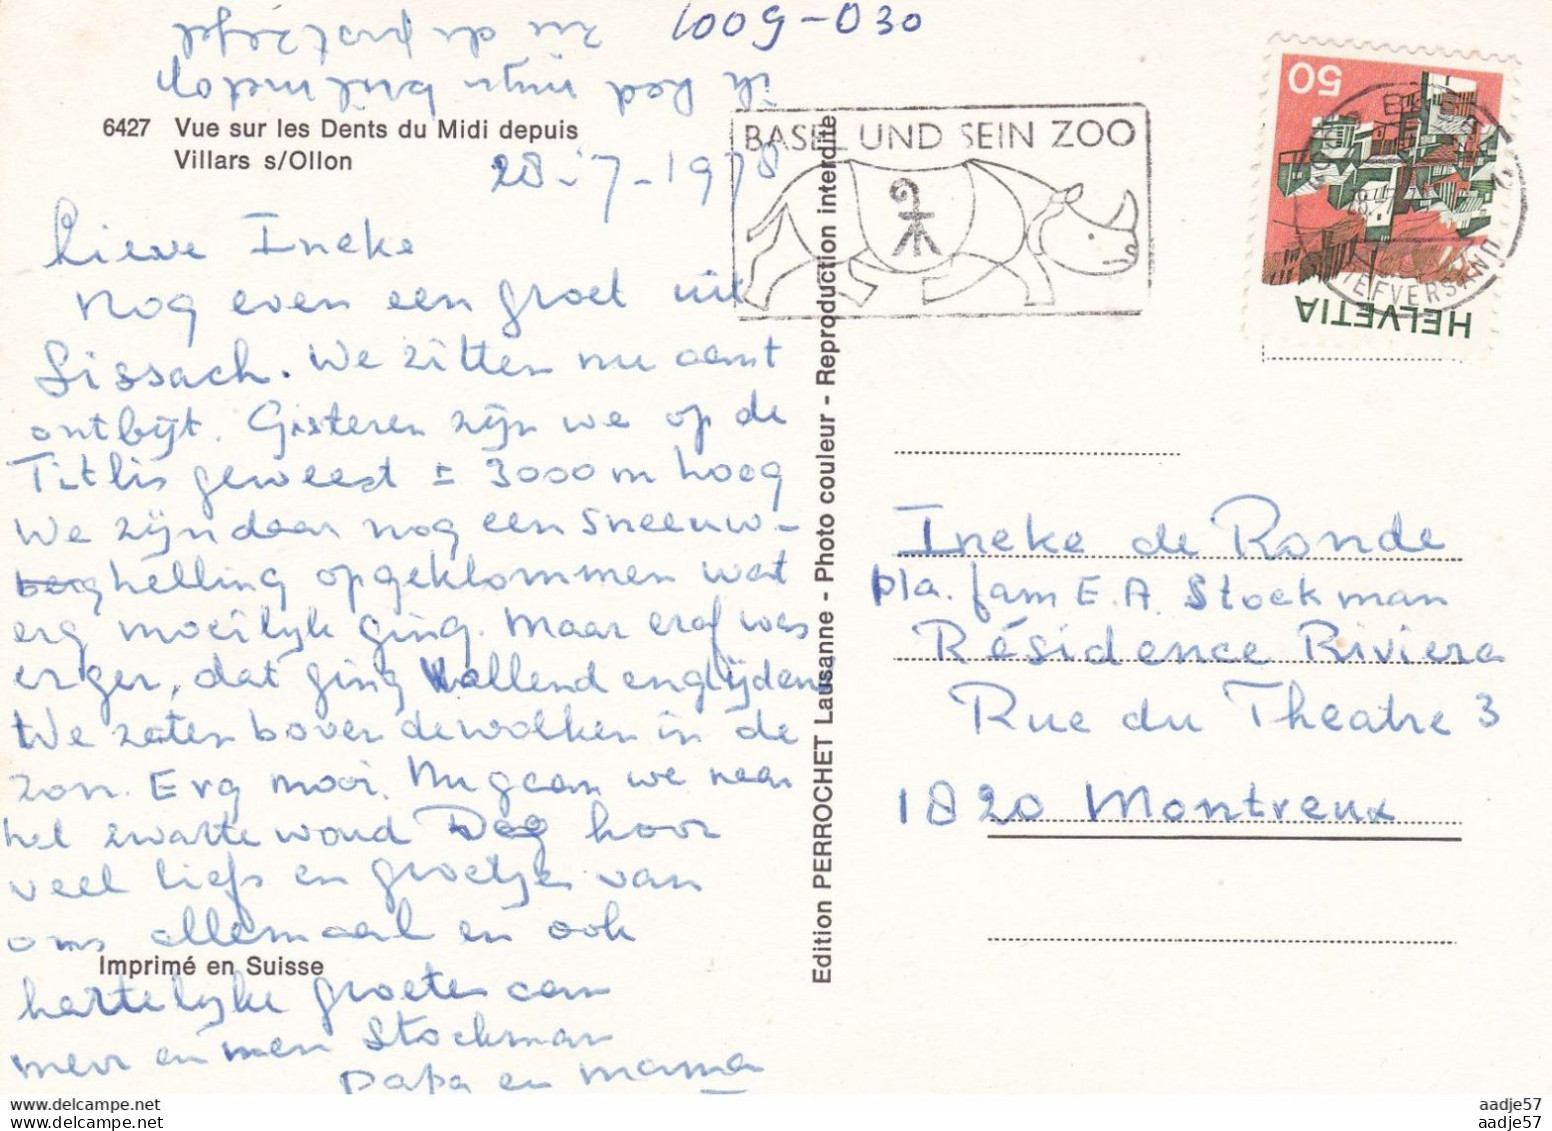 1009-030
ik had mijn bril niet op
zie de postzegel
6427 Vue sur les Dents du Midi depuis
Villars s/Ollon
28-7-1978
Lieve Ineke
Nog even een groet uit
Sissach. We zitten nu aan 't
ontbijt. Gisteren zijn we op de
Titlis geweest ± 3000 m hoog
We zijn daar nog een sneeuw-
berghelling opgeklommen wat
erg moeilijk ging. Maar eraf was
erger, dat ging vallend englijdend
We zaten boven de wolken in de
zon. Erg mooi. Nu gaan we naar
het zwarte woud Dag hoor
veel liefs en groetjes van
ons allemaal en ook
hartelijke groeten aan
mevr en men Stockman
Papa en mama
Imprimé en Suisse
Edition PERROCHET Lausanne - Photo couleur - Reproduction interdite
BASEL UND SEIN ZOO
50
HELVETIA
BASEL 2
BRIEFVERSAND
Ineke de Ronde
p/a. fam E.A. Stockman
Résidence Riviera
Rue du Theatre 3
1820 Montreux
aadje57
aadje57